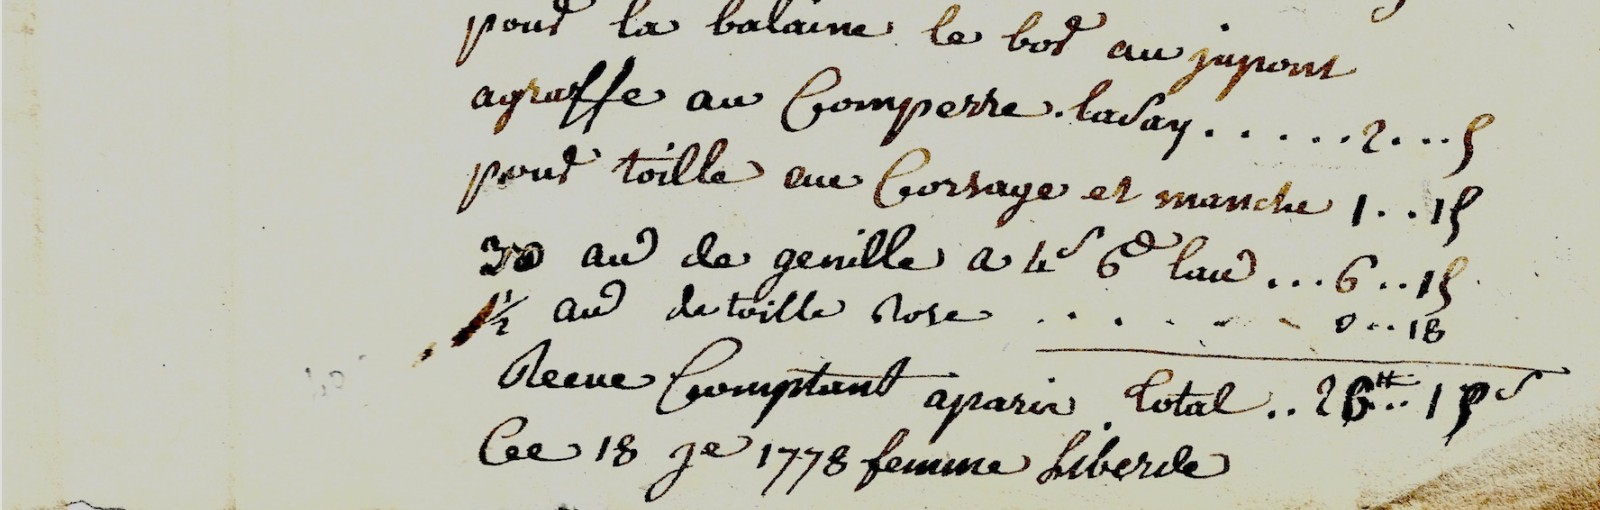 pour la balaine le bor au jupont
agraffe au Comperre laday . . . . . 2 . . . 5
pour toille au Corsage et manche 1 . . 15
30 au de genille a 4s 6d lau . . . 6 . . 15
1 1/2 au de toille Rose . . . . . 0 . . 18
Recue Comptant aparis Total . . 26tt . . 15s
Cee 18 je 1778 femme